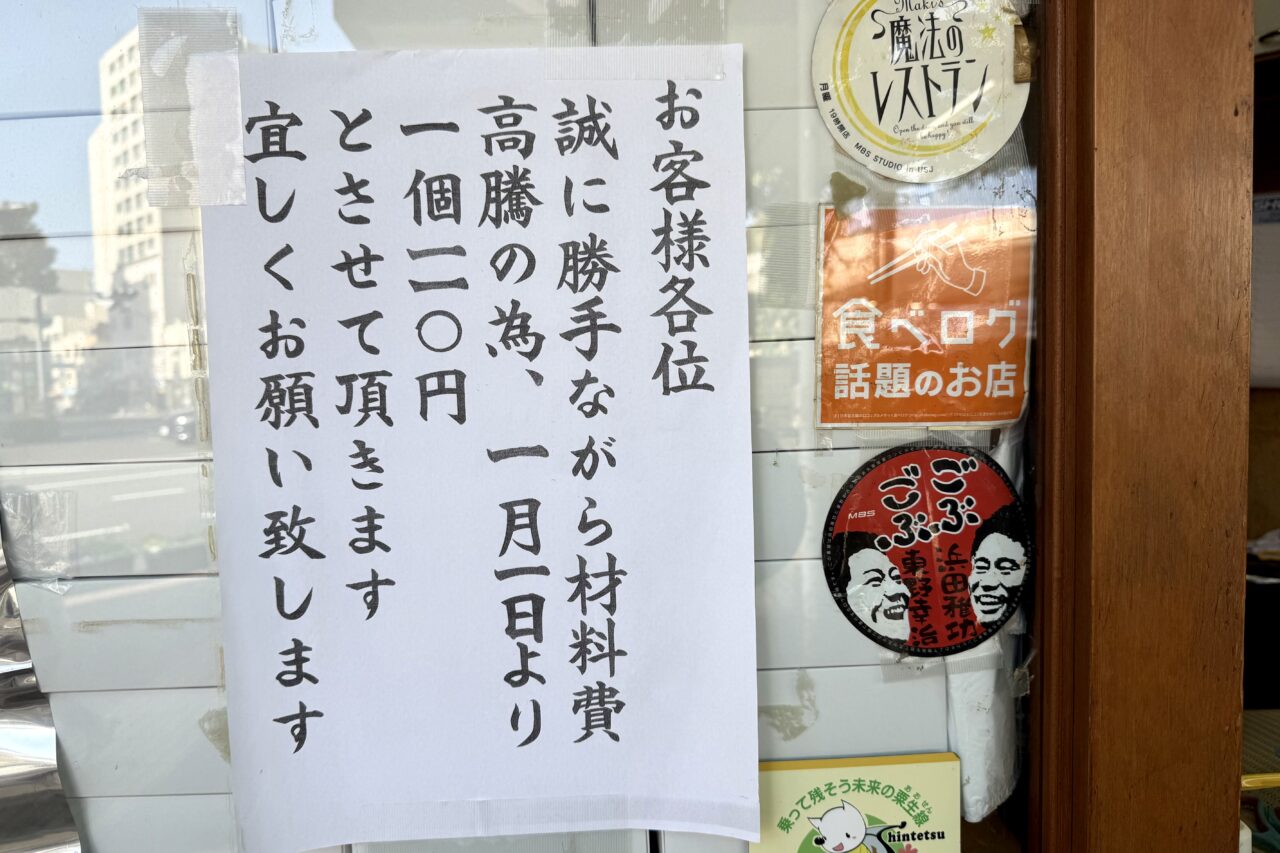 お客様各位
誠に勝手ながら材料費
高騰の為、一月一日より
一個一二〇円
とさせて頂きます
宜しくお願い致します
Maki's
魔法の
レストラン
Open the door and you will be happy!
月曜 19時開店 MBS STUDIO in USJ
食べログ
話題のお店
MBS
ごぶごぶ
浜田雅功
東野幸治
乗って残そう未来の粟生線
あおせん
Shintetsu